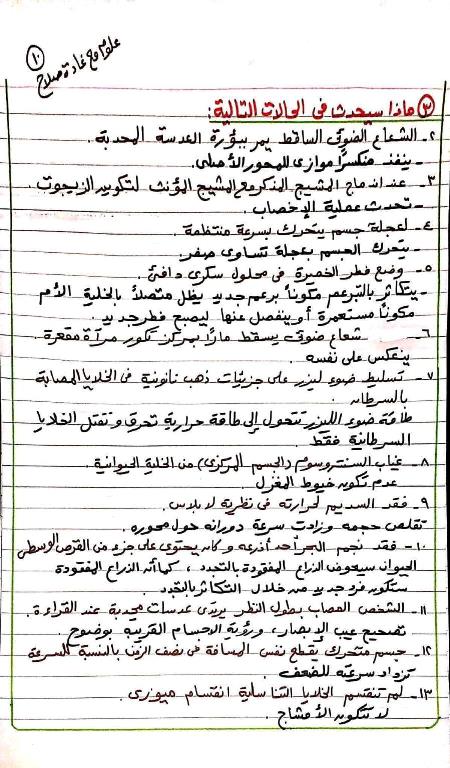 علوم مع غادة صلاح
١٠
٣ ماذا سيحدث في الحالات التالية :
٢- الشعاع الضوئي الساقط يمر ببؤرة العدسة المحدبة .
- ينفذ منكسرًا موازي للمحور الأصلي .
٣- عند اندماج المشيج المذكر مع المشيج المؤنث لتكوين الزيجوت .
- تحدث عملية الإخصاب .
٤- لعجلة جسم يتحرك بسرعة منتظمة .
- يتحرك الجسم بعجلة تساوى صفر .
٥- وضع فطر الخميرة في محلول سكري دافئ .
- يتكاثر بالتبرعم مكونًا برعم جديد يظل متصلًا بالخلية الأم
مكونًا مستعمرة أو ينفصل عنها ليصبح فطر جديد .
٦- شعاع ضوئي يسقط مارًا بمركز تكور مرآة مقعرة .
ينعكس على نفسه .
٧- تسليط ضوء ليزر على جزيئات ذهب نانونية في الخلايا المصابة
بالسرطان .
طاقة ضوء الليزر تتحول إلى طاقة حرارية تحرق وتقتل الخلايا
السرطانية فقط .
٨- غياب السنتروسوم (الجسم المركزي) من الخلية الحيوانية .
عدم تكون خيوط المغزل .
٩- فقد السديم لحرارته في نظرية لابلاس .
تقلص حجمه وزادت سرعة دورانه حول محوره .
١٠- فقد نجم البحر أحد أذرعه وكان يحتوي على جزء من القرص الوسطى
الحيوان سيعوض الذراع المفقودة بالتجدد ، كما أنه الذراع المفقودة
ستكون فرد جديد من خلال التكاثر بالتجدد .
١١- الشخص المصاب بطول النظر يرتدى عدسات محدبة عند القراءة .
تصحيح عيب الإبصار ، ورؤية الأجسام القريبة بوضوح
١٢- جسم متحرك يقطع نفس المسافة في نصف الزمن بالنسبة للسرعة
تزداد سرعته للضعف .
١٣- لم تنقسم الخلايا التناسلية انقسام ميوزى .
لا تتكون الأمشاج .